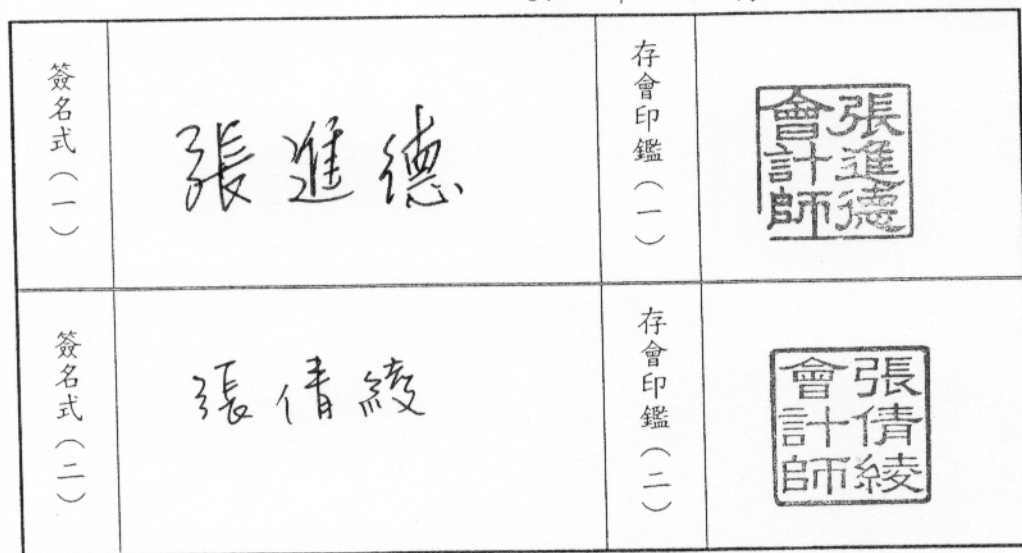 簽名式（一）
張進德
存會印鑑（一）
張進德
會計師
簽名式（二）
張倩綾
存會印鑑（二）
張倩綾
會計師